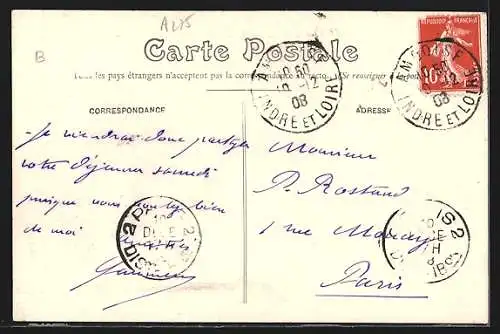 A275
B
Carte Postale
Tous les pays étrangers n'acceptent pas la correspondance au recto. (Se renseigner à la poste)
REPUBLIQUE FRANÇAISE
10
AMBOISE
10-12
08
INDRE ET LOIRE
AMBOISE
12
08
INDRE ET LOIRE
CORRESPONDANCE
ADRESSE
Je viendrai donc partager
votre déjeuner samedi
puisque vous voulez bien
de moi
Monsieur
P. Rostand
1 rue
Paris
PARIS 2
DISTRIB